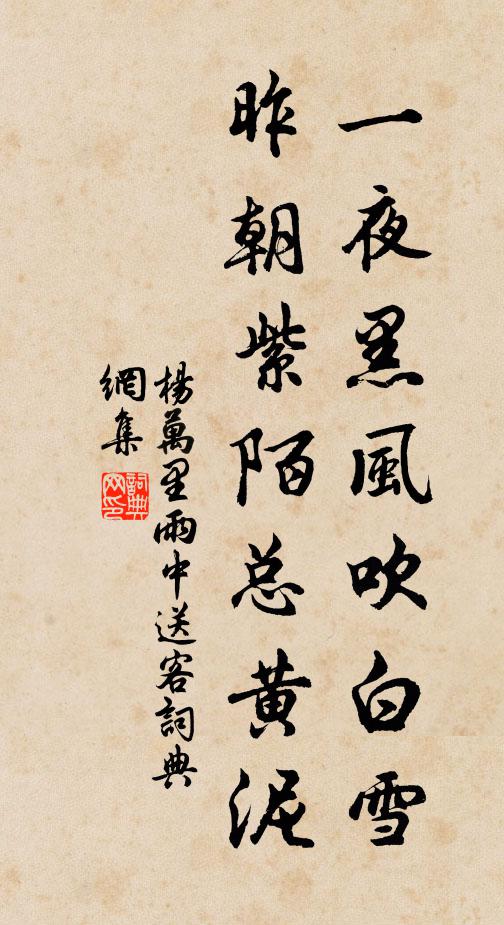 一夜黑風吹白雪
昨朝紫陌总黃泥
楊萬里雨中送客詞典
網集
詞典
网印